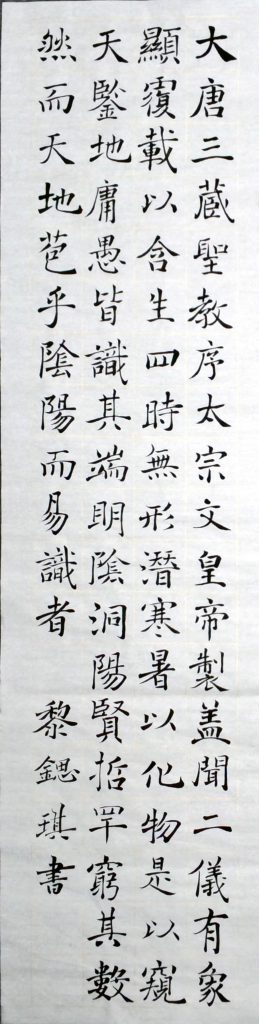 大唐三藏聖教序太宗文皇帝製盖聞二儀有象
顯覆載以含生四時無形潛寒暑以化物是以窺
天鑒地庸愚皆識其端明陰洞陽賢哲罕窮其數
然而天地苞乎陰陽而易識者 黎鍶琪書